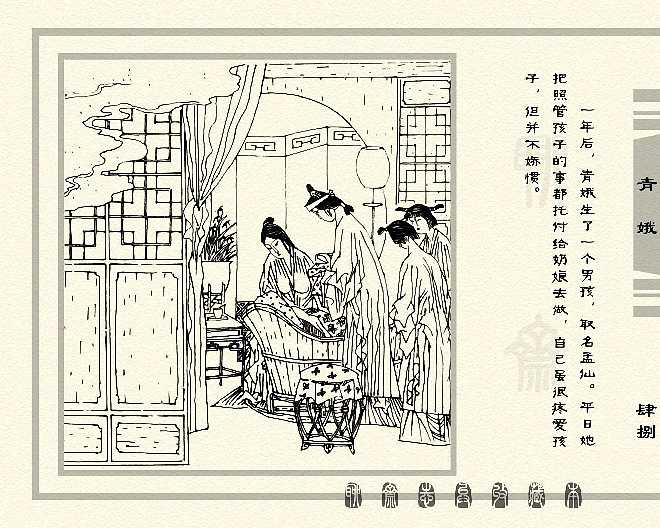 一年后，青娥生了一个男孩，取名孟仙。平日她
把照管孩子的事都托付给奶娘去做，自己虽很疼爱孩
子，但并不娇惯。
青娥
肆捌